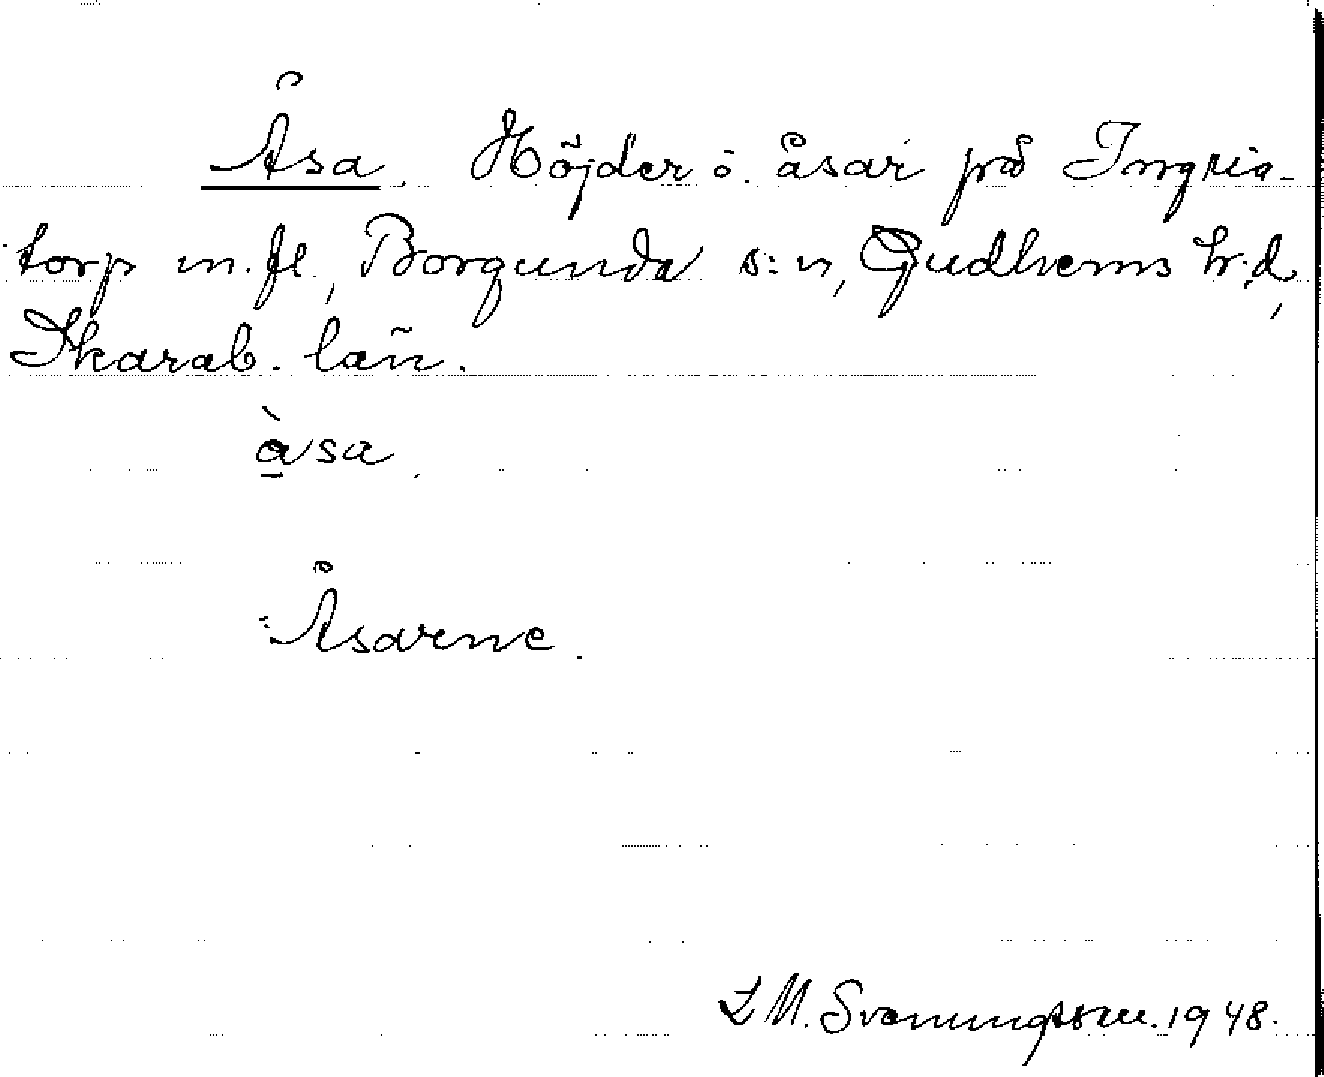 Åsa. Höjder o. åsar på Ingrid-
torp m.fl., Borgunda s:n, Gudhems h:d,
Skarab. län.
åsa.
Åsarne.
L M. Svenungsson. 1948.